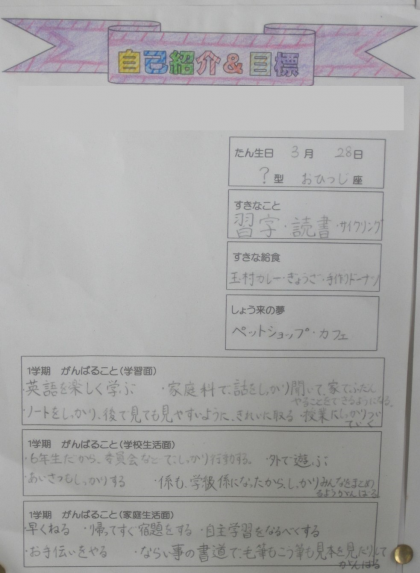 自己紹介&目標
たん生日 3月 28日
?型 おひつじ座
すきなこと
習字・読書・サイクリング
すきな給食
玉村カレー・ぎょうざ・手作りドーナツ
しょう来の夢
ペットショップ・カフェ
1学期 がんばること(学習面)
・英語を楽しく学ぶ ・家庭科で、話をしっかり聞いて、家でふだん
やることをできるようになる。
・ノートをしっかり、後で見ても見やすいように、きれいに取る ・授業にしっかりついて
いく
1学期 がんばること(学校生活面)
・6年生だから、委員会などでしっかり活動する。 ・外で遊ぶ
・あいさつをしっかりする ・係も、学級係になったから、しっかりみんなをまとめ
るようがんばる
1学期 がんばること(家庭生活面)
・早くねる ・帰ってすぐ宿題をする ・自主学習をなるべくする
・お手伝いをやる ・ならい事の書道で、毛筆もこう筆も見本を見たりして
がんばる